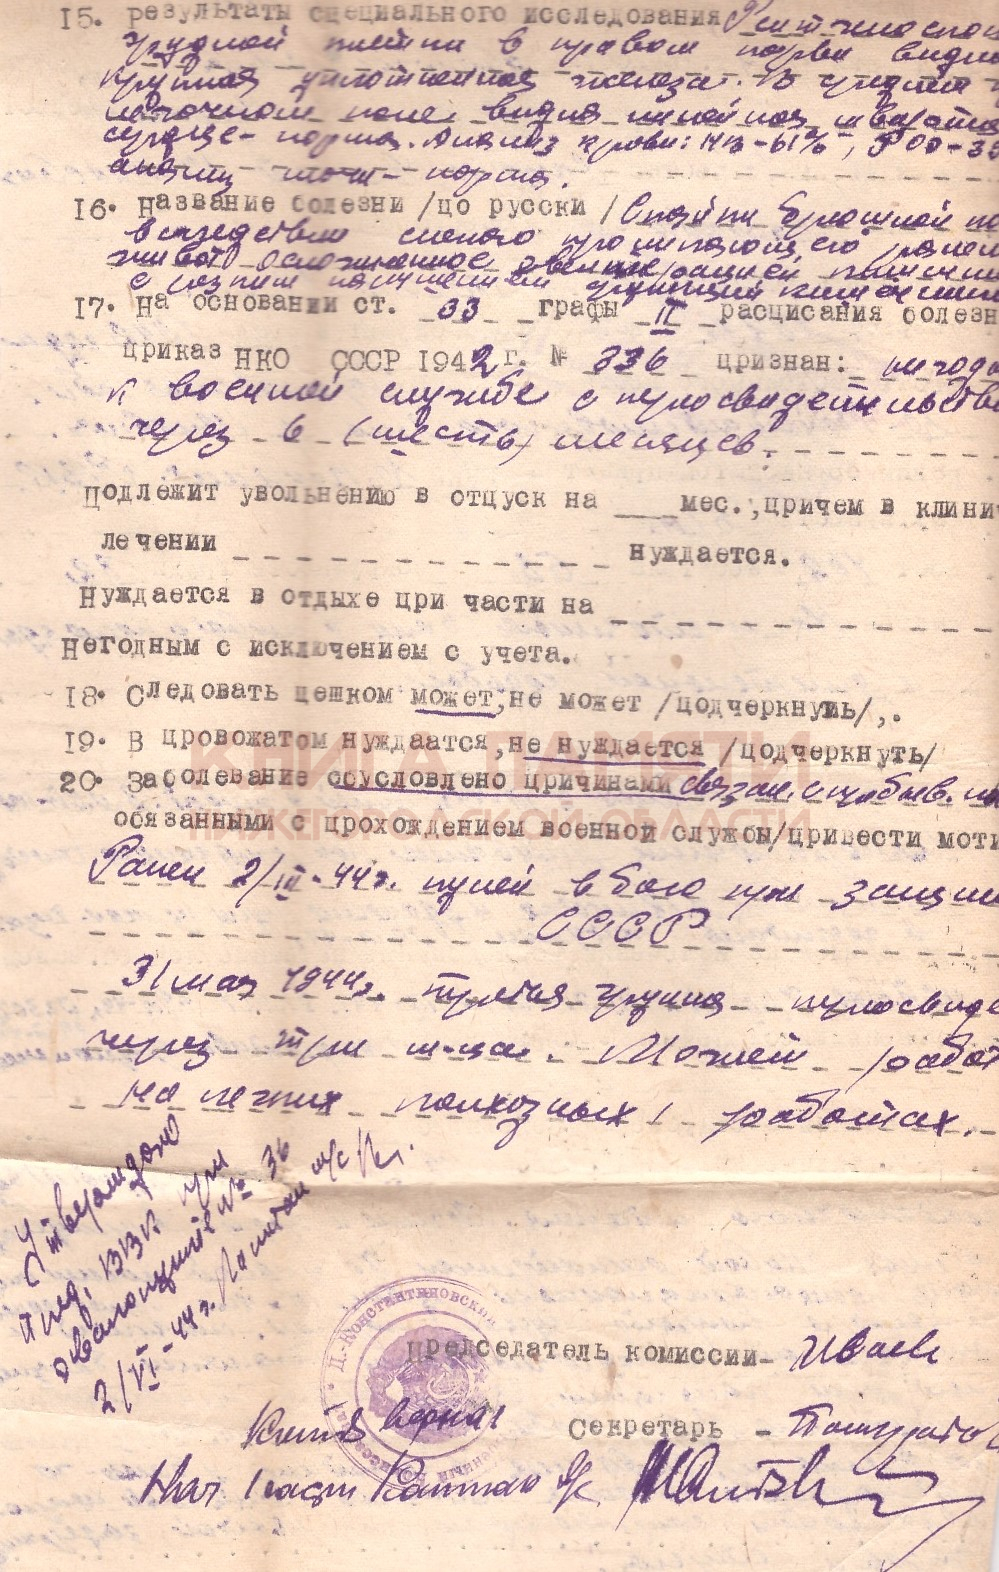 15. Результаты специального исследования Рентгеноскоп
грудной клетки в правом корне видна
крупная уплотненная железа. В среднем
легочном поле видна линейная шварта
сердце - норма. Анализ крови: НВ-61%, РОЭ-35
анализ мочи - норма.
16. Название болезни /по русски/ Спайки брюшной по
вследствие слепого проникающего ранен
живота осложненное
с резким нарушением функции кишечника
17. На основании ст. 33 графы II расписания болезн
приказ НКО СССР 1942 г. № 336 признан: не годе
к военной службе с переосвидетельство
через 6 (шесть) месяцев.
Подлежит увольнению в отпуск на ___ мес., причем в клинич
лечении _ _ _ _ _ _ _ _ _ _ _ _ нуждается.
Нуждается в отдыхе при части на _ _ _ _ _ _ _ _ _ _ _
Негодным с исключением с учета.
18. Следовать пешком может, не может /подчеркнуть/,.
19. В провожатом нуждаатся, не нуждается /подчеркнуть/
20. Заболевание обусловлено причинами связан. с пребыв. на
обязанными с прохождением военной службы/привести моти
Ранен 2/III-44г. пулей в бою при защи
СССР
31 мая 1944г. третья группа переосвиде
через три м-ца. Может работ
на легких колхозных работах.
Утверждено
пред. ВВК при
эвакопункте № 36
2/VI-44г. Капитан м/с
Д.-Константиновский
Председатель комиссии- Иваев
Копия верна:
Секретарь -
Нач части Капитан
КНИГА ПАМЯТИ
НИЖЕГОРОДСКОЙ ОБЛАСТИ